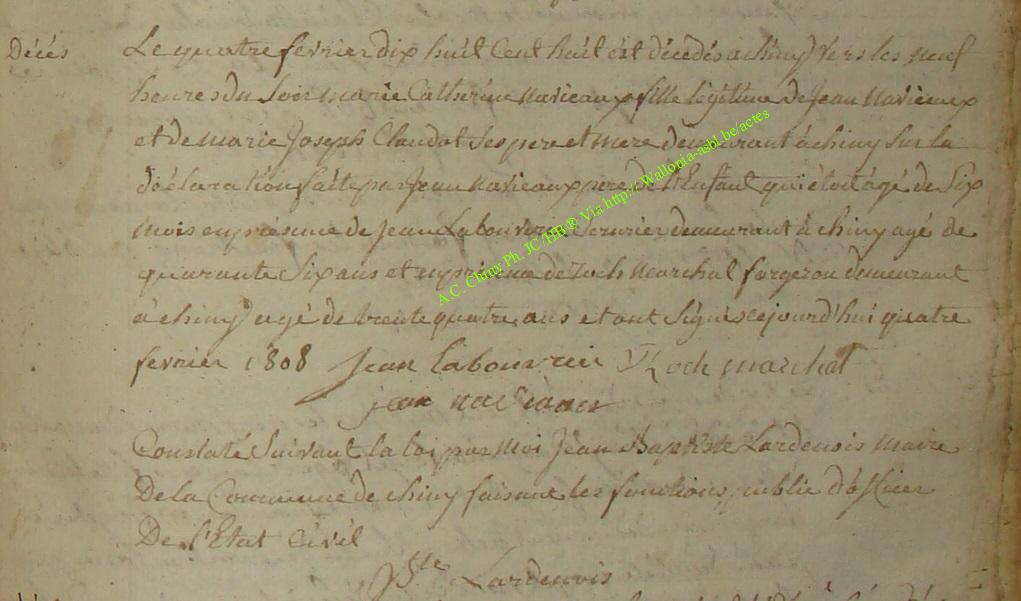 Décés
Le quatre fevrier dix huit Cent huit est décedés a chiny vers les neuf
heures du Soir marie Catherine Navieaux fille légitime de Jean Navieaux
et de marie Joseph Claudot Ses pere et mere demeurant à chiny Sur la
déclaration faite par Jean Navieaux pere de l'Enfant qui étoit agé de Six
mois en présence de Jean Labouvrie Serurier demeurant à chiny agé de
quarante Six ans et en présence de Roch Marchal forgeron demeurant
à chiny agé de trente quatre ans et ont Signés cejourd'hui quatre
fevrier 1808 Jean labouvrie Roch marchal
jean
Constaté Suivant la loi par Moi Jean Baptiste Lardenois Maire
De la Commune de chiny faisant les fonctions public d'officier
De l'Etat Civil
Lardenois
A.C. Chiny Ph. JC/HB® Via http://Wallonia-asbl.be/actes